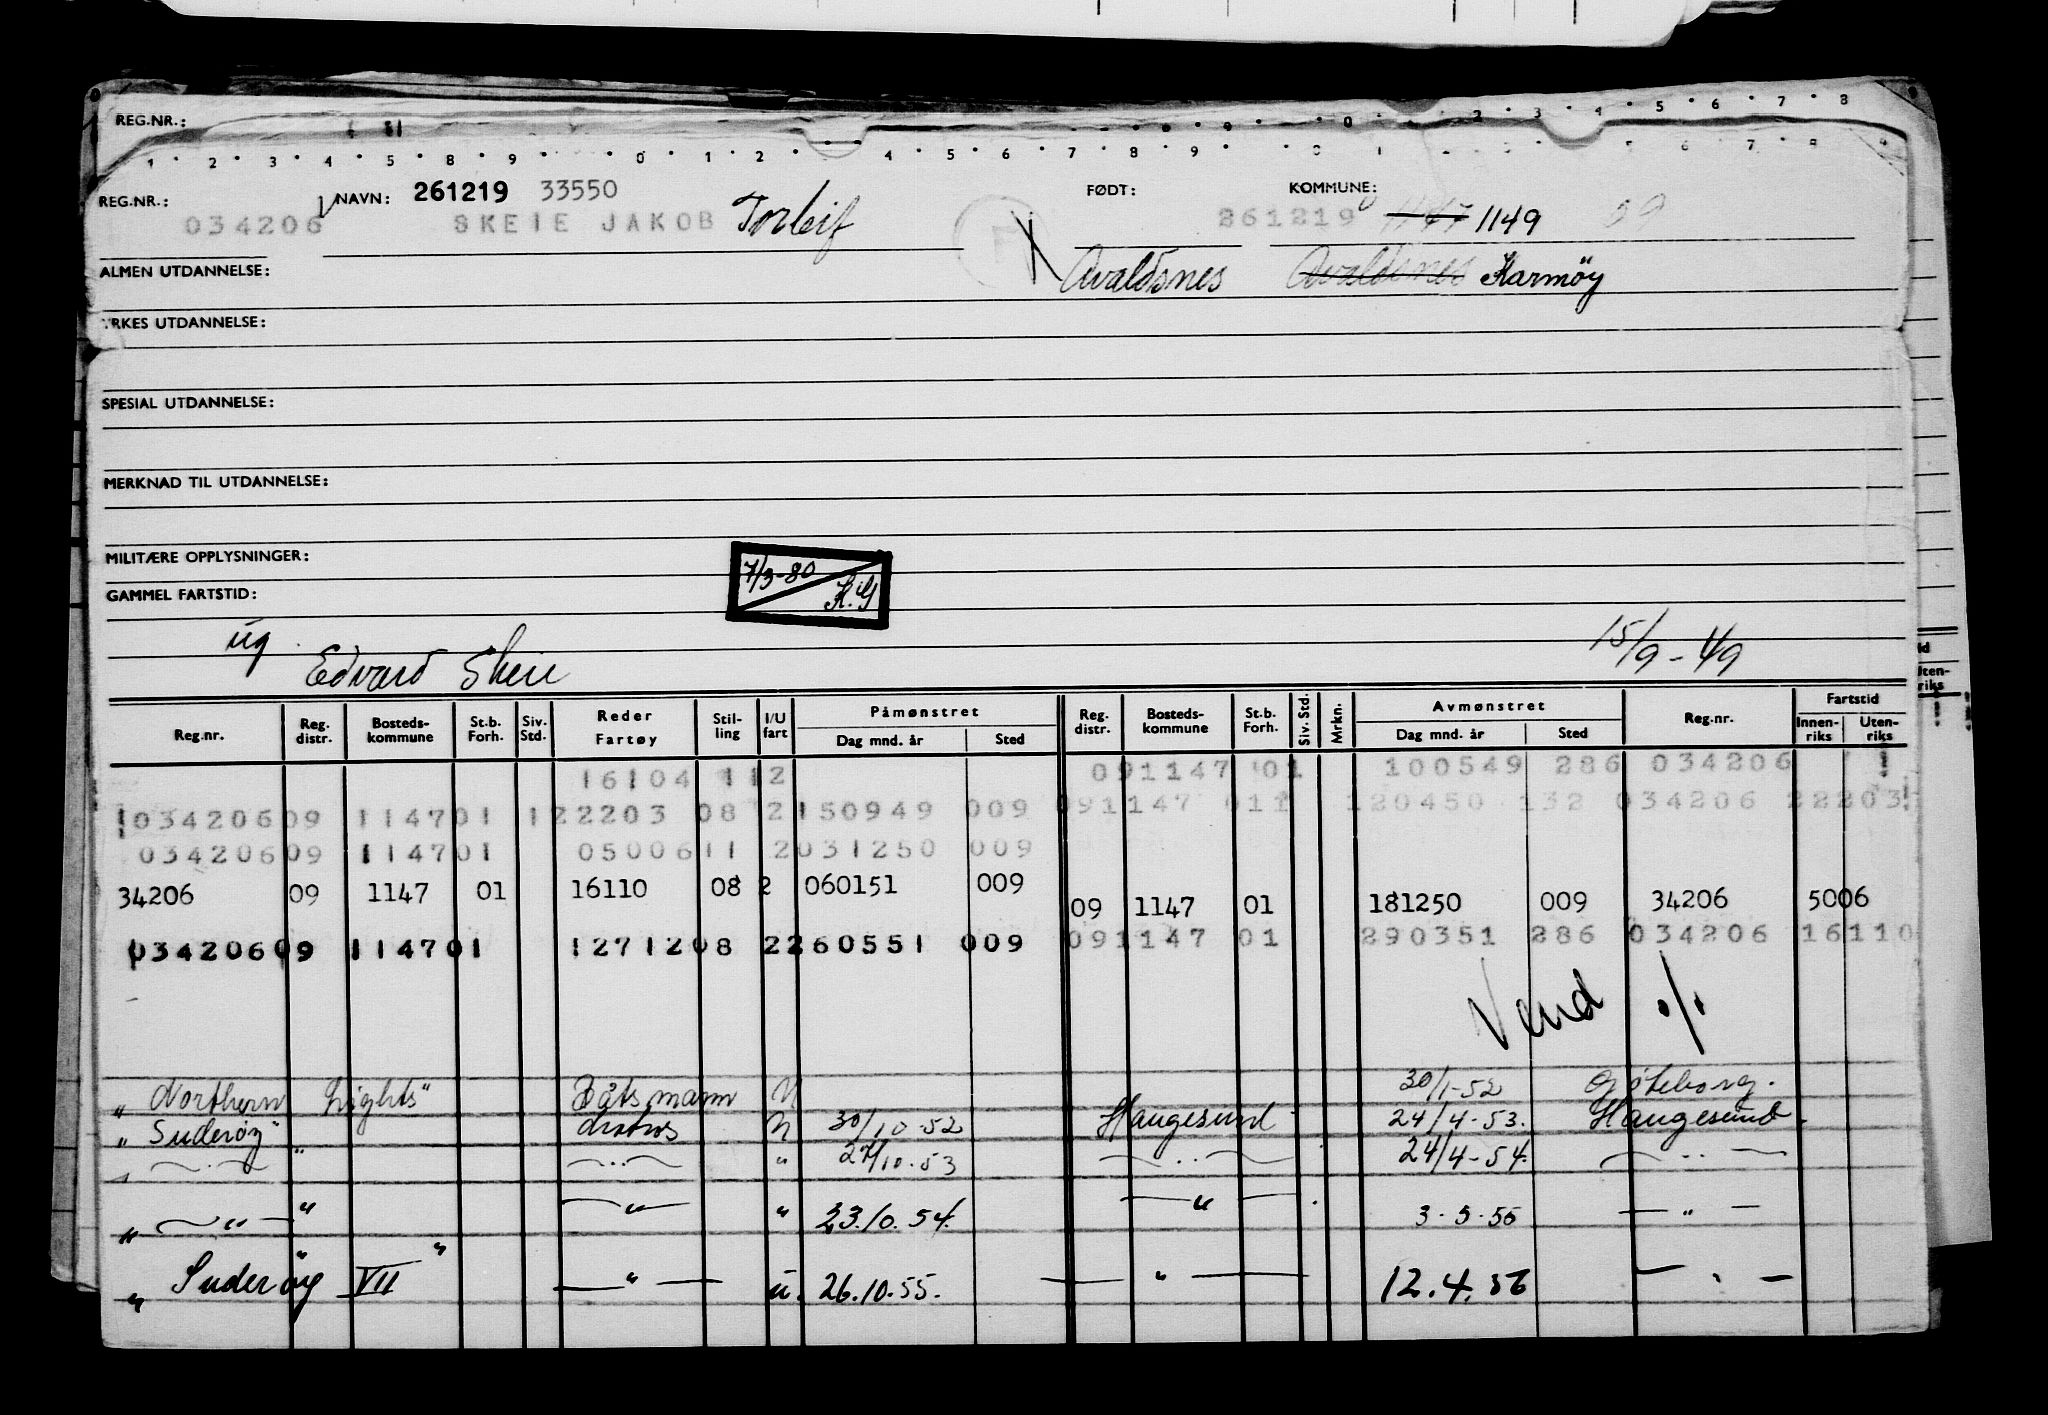 REG.NR.:
REG.NR.: NAVN: 261219 33550 FØDT: KOMMUNE:
034206 SKEIE JAKOB Torleif 261219 1147 1149 59
ALMEN UTDANNELSE: Avaldsnes Avaldsnes Karmøy
YRKES UTDANNELSE:
SPESIAL UTDANNELSE:
MERKNAD TIL UTDANNELSE:
MILITÆRE OPPLYSNINGER: 7/3-80 K.G
GAMMEL FARTSTID:
ug Edvard Skeie 15/9-49
Reg.nr. Reg. distr. Bosteds-kommune St.b. Forh. Siv. Std. Reder Fartøy Stil-ling I/U fart Påmønstret Dag mnd. år Sted Reg. distr. Bosteds-kommune St.b. Forh. Siv. Std. Mrkn. Avmønstret Dag mnd. år Sted Reg.nr. Fartstid Innen-riks Uten-riks
16104 112 091147 01 100549 286 034206
03420609 114701 122203 08 2150949 009 091147 011 120450 132 034206 22203
03420609 114701 0500611 2031250 009
34206 09 1147 01 16110 08 2 060151 009 09 1147 01 181250 009 34206 5006
03420609 114701 1271208 2260551 009 091147 01 290351 286 034206 16110
Vend ·/·
"Northern Lights" Båtsmann U 30/1-52 Göteborg.
"Suderøy" Matros U 30/10-52 Haugesund 24/4-53. Haugesund.
" — " — " — " — " 27/10-53 — " — 24/4-54. — " —
" — " — " — " — " 23.10.54. — " — 3.5.55 — " —
" Suderøy VII " — " — u. 26.10.55. — " — 12.4.56 — " —